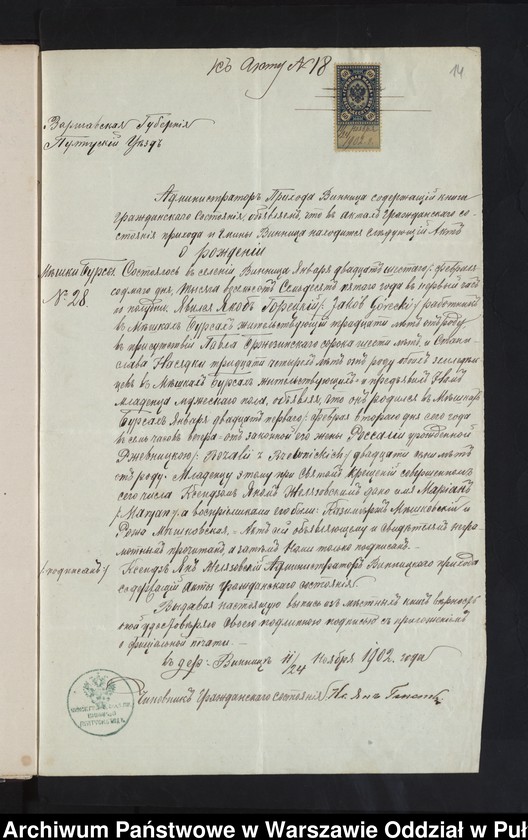 Къ Акту № 18
14
Варшавская Губернія
Пултускій Уѣздъ
1902 г.
Администраторъ Прихода Винница содержащій книги
Гражданскаго Состоянія, объявляетъ, что въ актахъ Гражданскаго со-
стоянія прихода и гмины Винница находится слѣдующій Актъ
о рожденіи
Мѣшки Бурсы
№ 28
Состоялось въ селеніи Винница Января двадцать шестого / Февраля
седмаго дня, тысяча восемьсотъ Семьдесятъ пятого года въ первый часъ
по полудни. Явился Якобъ Горецкій /: Jakób Górecki :/ работникъ
въ Мѣшкахъ Бурсахъ жительствующій тридцати лѣтъ отъ роду,
въ присутствіи Павла сорока шести лѣтъ, и Стани-
слава Насядки тридцати четырехъ лѣтъ отъ роду, обоихъ
въ Мѣшкахъ Бурсахъ жительствующихъ и предъявилъ Намъ
младенца мужескаго пола, объявляя, что онъ родился въ Мѣшкахъ
Бурсахъ Января двадцать перваго / Февраля второго дня сего года
въ семь часовъ вечера отъ законной его жены Россаліи урожденной
Ржевницкою /: Rozalii z Rzewnickich :/ двадцати лѣтъ
отъ роду. Младенцу этому при Святомъ Крещеніи совершенномъ
сего числа Ксендзомъ Яномъ Желязовскимъ дано имя Маріанъ
/: Maryan :/ а воспріемниками его были: Казимиръ Мышковскій и
Роза Мышковская. Актъ сей объявляющему и свидѣтелямъ негра-
мотнымъ прочитанъ, а затѣмъ Нами только подписанъ. —
(подписалъ)
Ксендзъ Янъ Желязовскій Администраторъ Винницкаго прихода
содержащій Акты гражданскаго состоянія
Выдавая настоящую выпись изъ мѣстныхъ книгъ вѣрность
оной удостовѣряю своею подлинною подписью съ приложеніемъ
официальной печати. —
въ дер: Винница 11/24 Ноября 1902 года
Чиновникъ Гражданскаго состоянія Кс. Янъ
Archiwum Państwowe w Warszawie Oddział w Puł